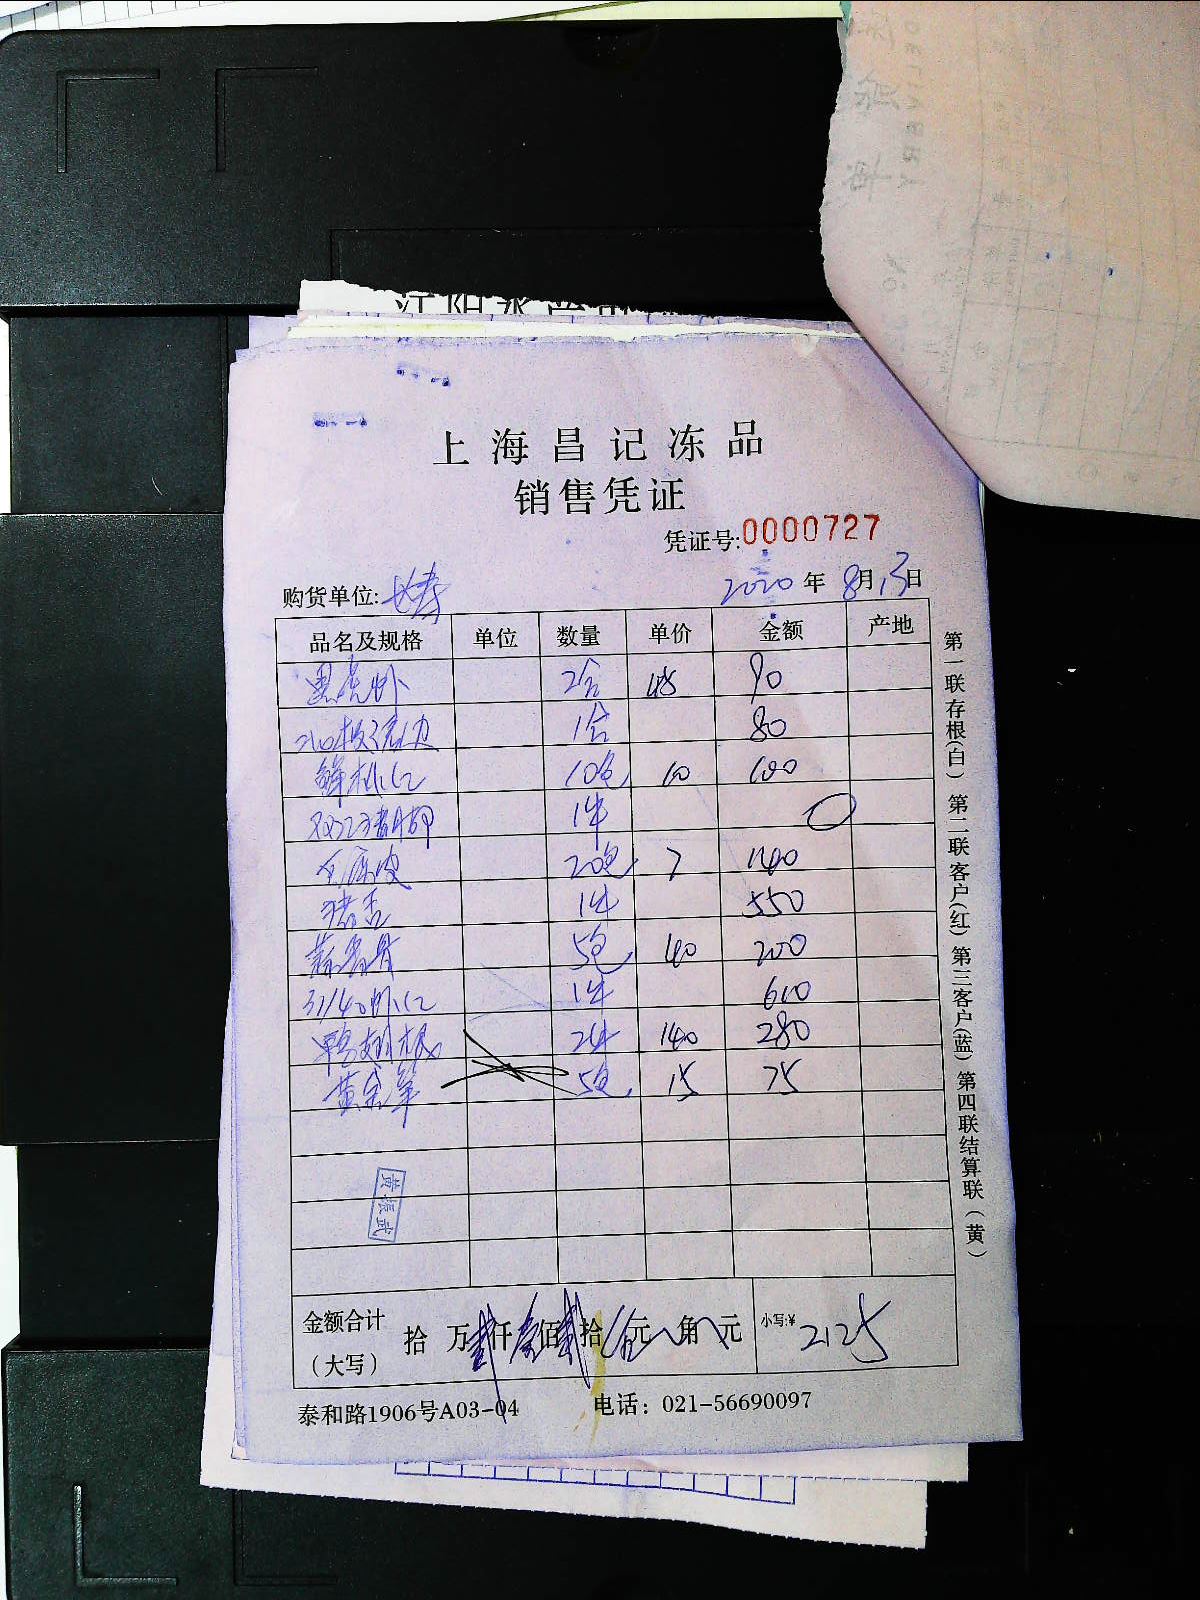 上海昌记冻品
销售凭证
凭证号:0000727
购货单位: 2020年8月13日
品名及规格 单位 数量 单价 金额 产地
黑虎虾 2合 45 90
1合 80
鲜桃仁 10包 10 100
1件
20包 7 140
猪舌 1件 550
5包 40 200
31/40虾仁 1件 610
鸭翅根 2件 140 280
黄金笋 5包 15 75
黄振武
金额合计(大写) 拾 万贰仟壹佰贰拾伍元 角 元 小写:¥ 2125
泰和路1906号A03-04 电话: 021-56690097
第一联存根(白) 第二联客户(红) 第三客户(蓝) 第四联结算联(黄)